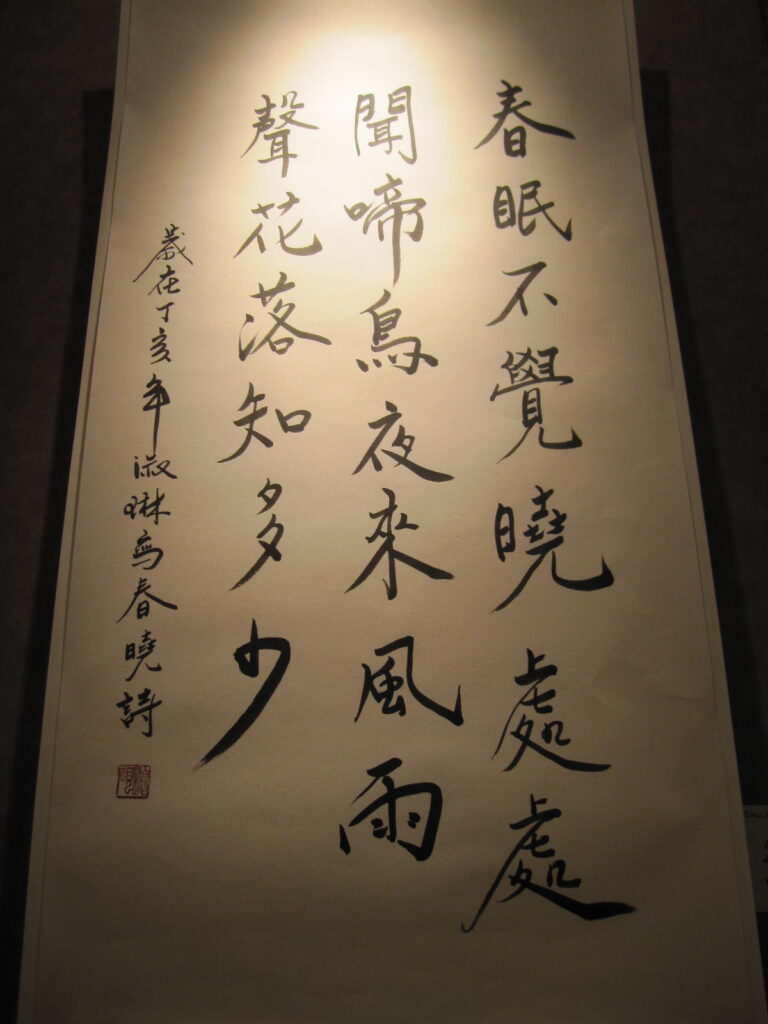 春眠不覺曉處處
聞啼鳥夜來風雨
聲花落知多少
歲在丁亥年淑琳寫春曉詩